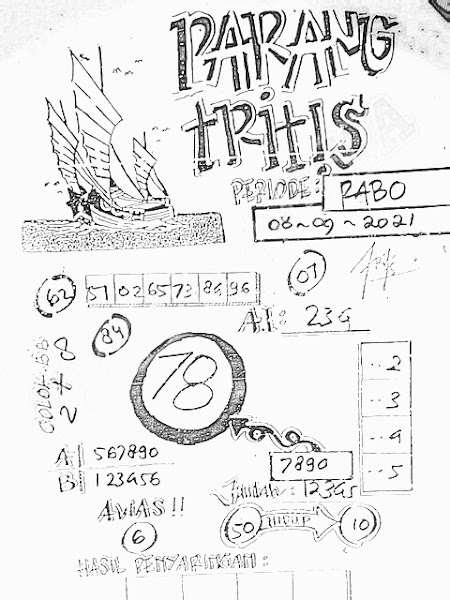 PARANG
TRITIS
PERIODE: RABO
08~09~2021
62 51 02 65 73 84 96 01
A.I: 234
84
78
COLOK BB
2 + 8
..2
..3
..4
..5
A 567890
B 123456
7890
Jumlah: 12345
AWAS!!
6
50 HIDUP 10
HASIL PENYARINGAN: